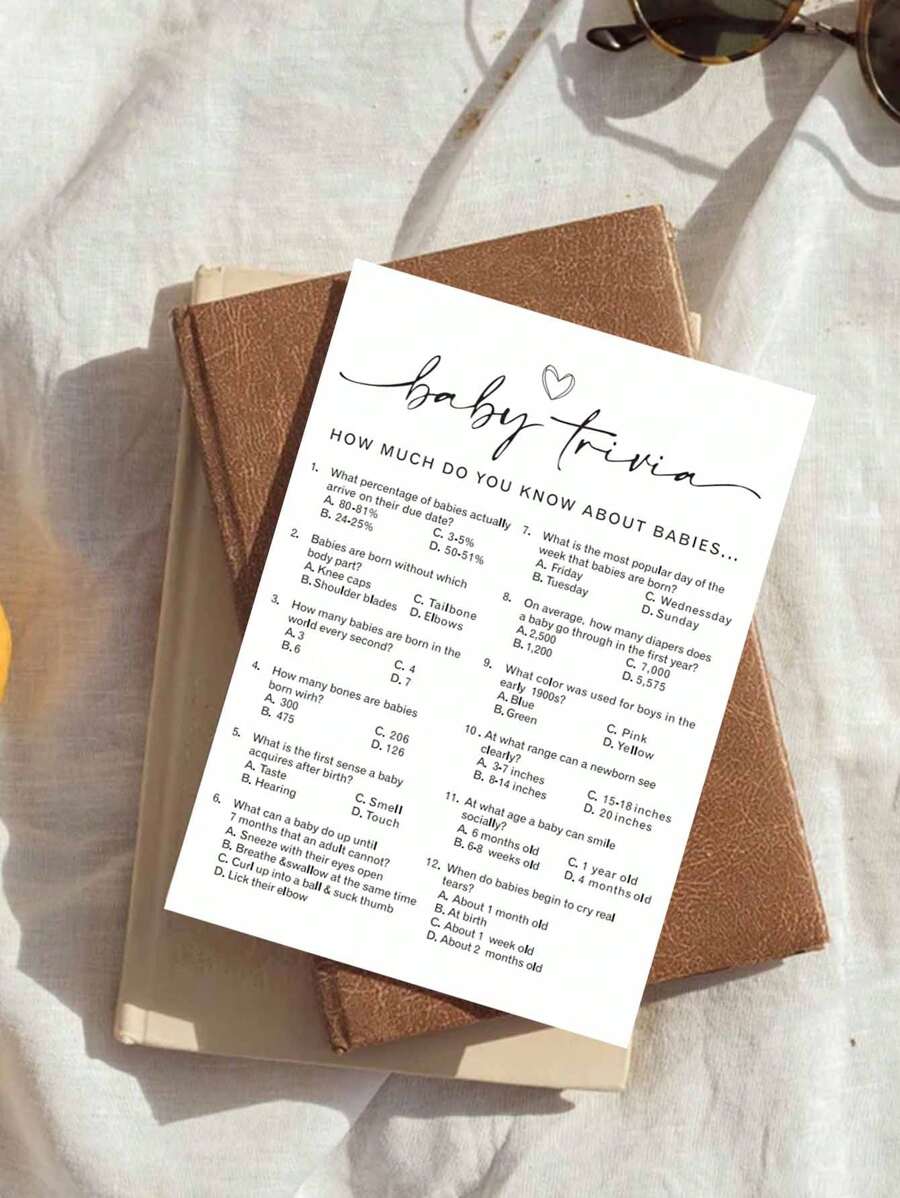 baby trivia
HOW MUCH DO YOU KNOW ABOUT BABIES...
1. What percentage of babies actually
arrive on their due date?
A. 80-81% C. 3-5%
B. 24-25% D. 50-51%
2. Babies are born without which
body part?
A. Knee caps C. Tailbone
B. Shoulder blades D. Elbows
3. How many babies are born in the
world every second?
A. 3 C. 4
B. 6 D. 7
4. How many bones are babies
born wirh?
A. 300 C. 206
B. 475 D. 126
5. What is the first sense a baby
acquires after birth?
A. Taste C. Smell
B. Hearing D. Touch
6. What can a baby do up until
7 months that an adult cannot?
A. Sneeze with their eyes open
B. Breathe &swallow at the same time
C. Curl up into a ball & suck thumb
D. Lick their elbow
7. What is the most popular day of the
week that babies are born?
A. Friday C. Wednessday
B. Tuesday D. Sunday
8. On average, how many diapers does
a baby go through in the first year?
A. 2,500 C. 7,000
B. 1,200 D. 5,575
9. What color was used for boys in the
early 1900s?
A. Blue C. Pink
B. Green D. Yellow
10. At what range can a newborn see
clearly?
A. 3-7 inches C. 15-18 inches
B. 8-14 inches D. 20 inches
11. At what age a baby can smile
socially?
A. 6 months old C. 1 year old
B. 6-8 weeks old D. 4 months old
12. When do babies begin to cry real
tears?
A. About 1 month old
B. At birth
C. About 1 week old
D. About 2 months old